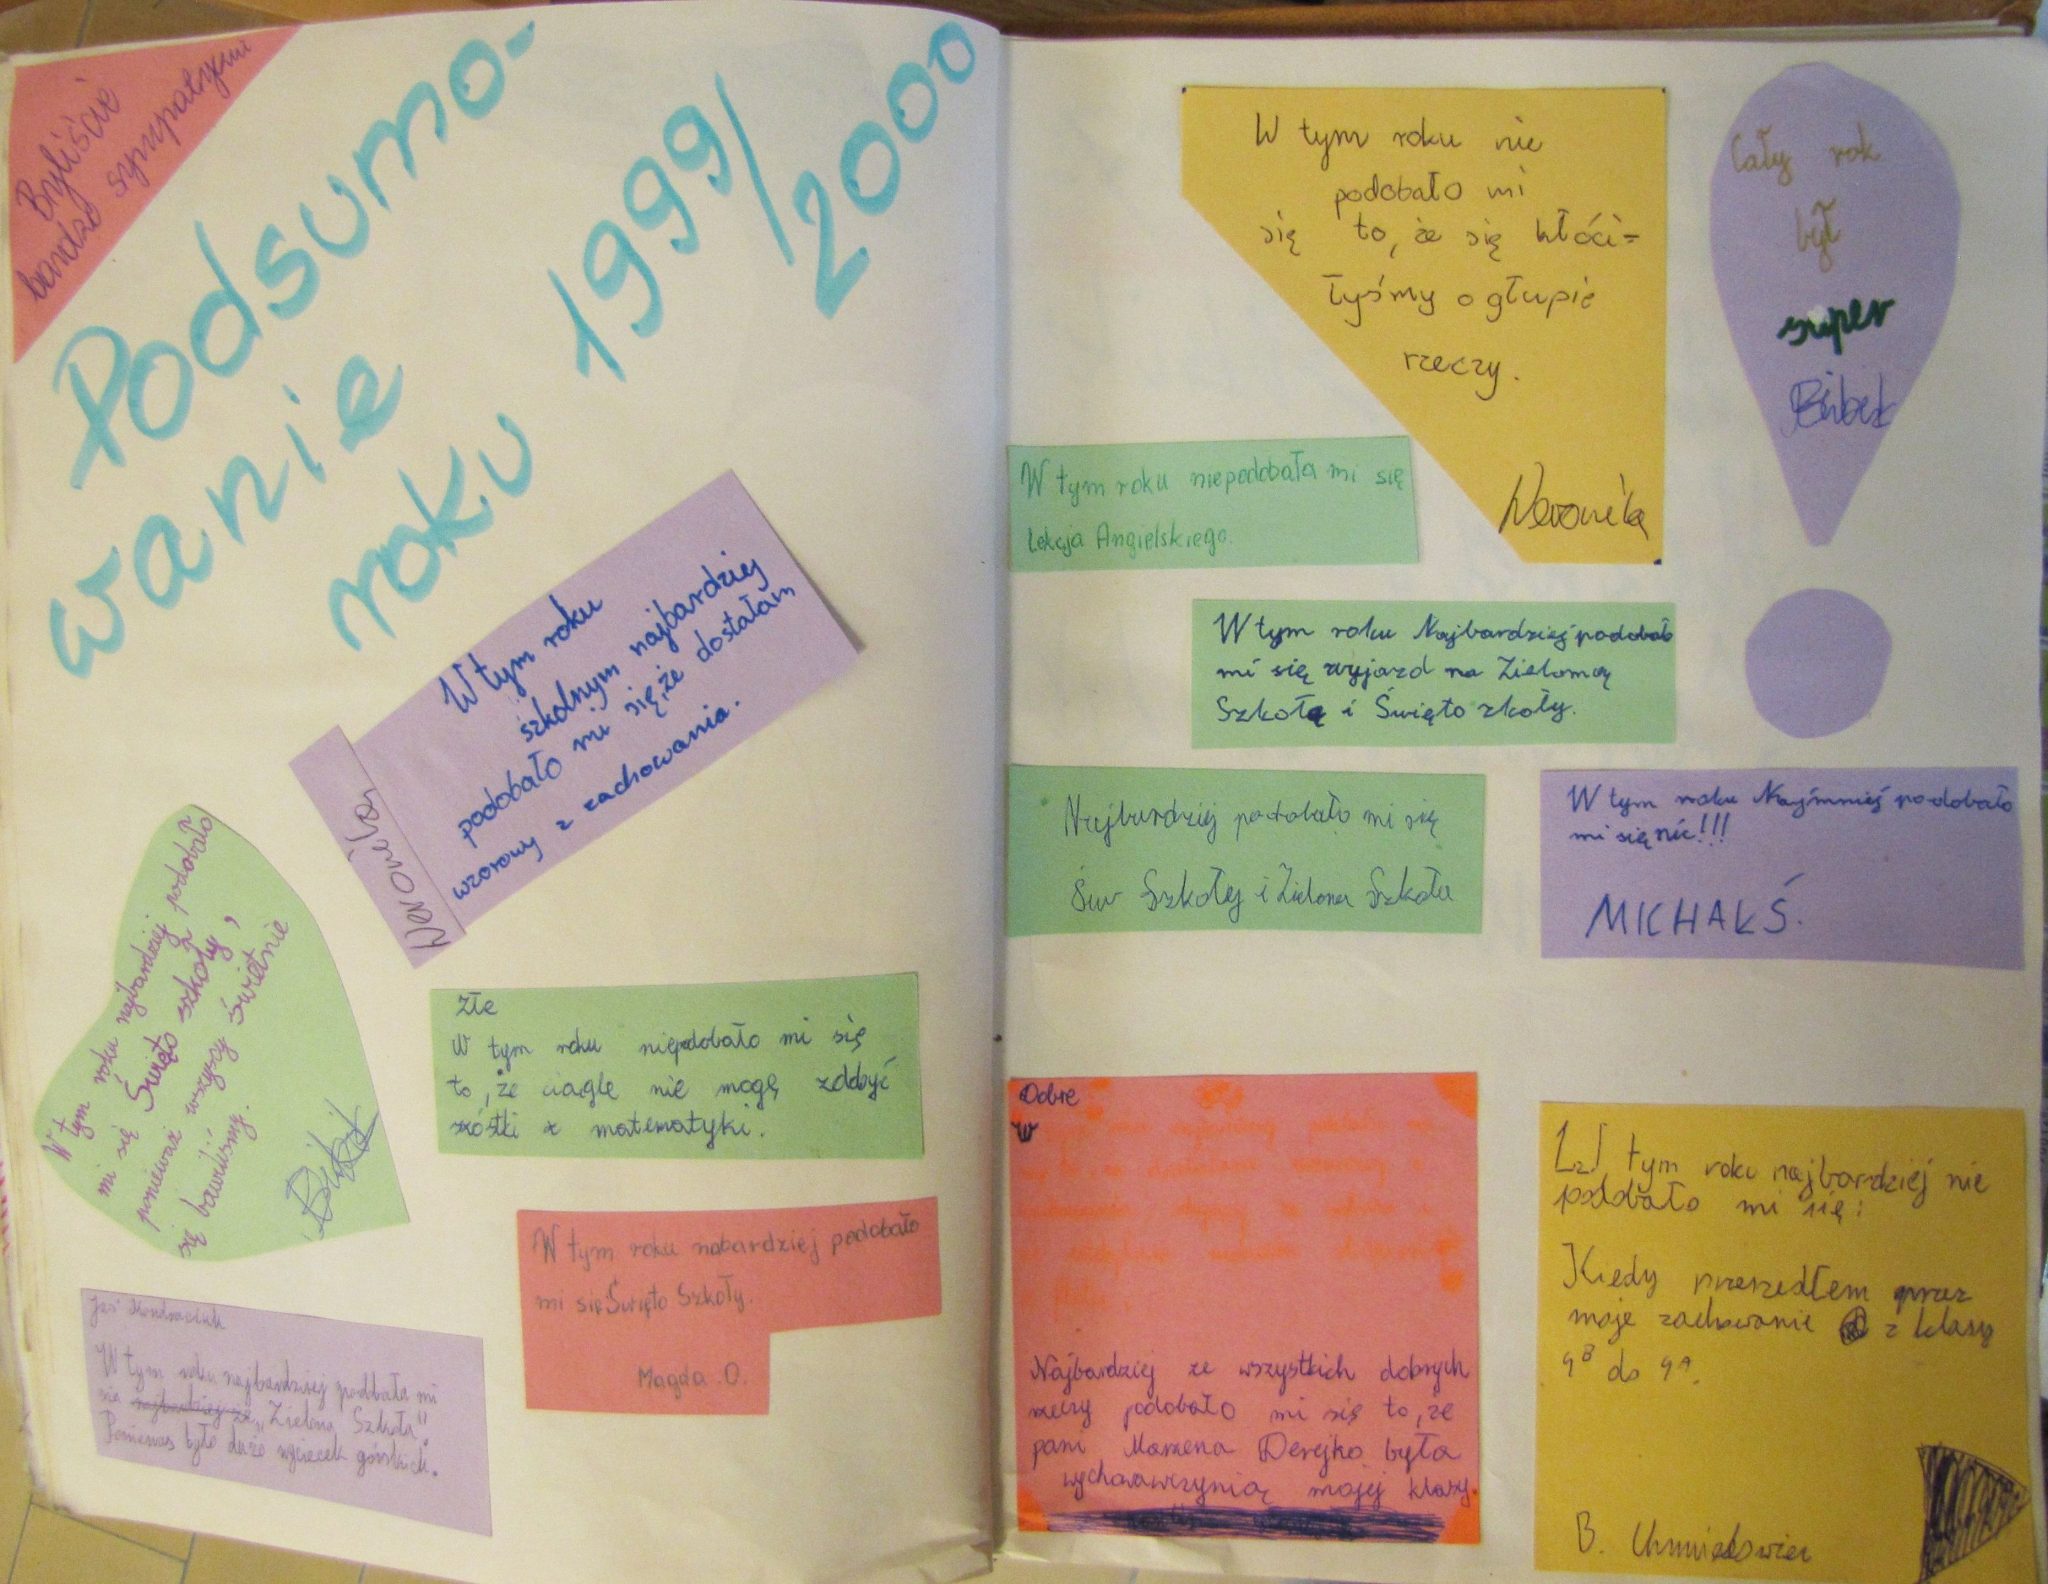 Byliście
bardzo sympatyczni
Podsumo-
wanie
roku 1999/
2000
W tym roku
szkolnym najbardziej
podobało mi się, że dostałam
wzorowy z zachowania.
Weronika
W tym roku najbardziej podobało
mi się Święto szkoły,
ponieważ wszyscy świetnie
się bawiliśmy.
Złe
W tym roku niepodobało mi się
to, że ciągle nie mogę zdobyć
szóstki z matematyki.
W tym roku nabardziej podobało
mi się Święto Szkoły.
Magda .O.
Jaś Kondraciuk
W tym roku najbardziej podobała mi
się najbardziej że "Zielona Szkoła".
Ponieważ było dużo wycieczek górskich.
W tym roku nie
podobało mi
się to, że się kłóci=
łyśmy o głupie
rzeczy.
Weronika
Cały rok
był
super
W tym roku niepodobała mi się
Lekcja Angielskiego.
W tym roku Najbardziej podobał
mi się wyjazd na Zieloną
Szkołę i Święto zkoły.
Najbardziej podobało mi się
Św Szkołej i Zielona Szkoła
W tym roku Najmniej podobało
mi się nic!!!
MICHAŁ Ś.
Dobre
W
Najbardziej ze wszystkich dobrych
rzeczy podobało mi się to, że
pani Marzena Derejko była
wychowawczynią mojej klasy.
W tym roku najbardziej nie
podobało mi się:
Kiedy przeszedłem przez
moje zachowanie z klasy
4B do 4A.
B.